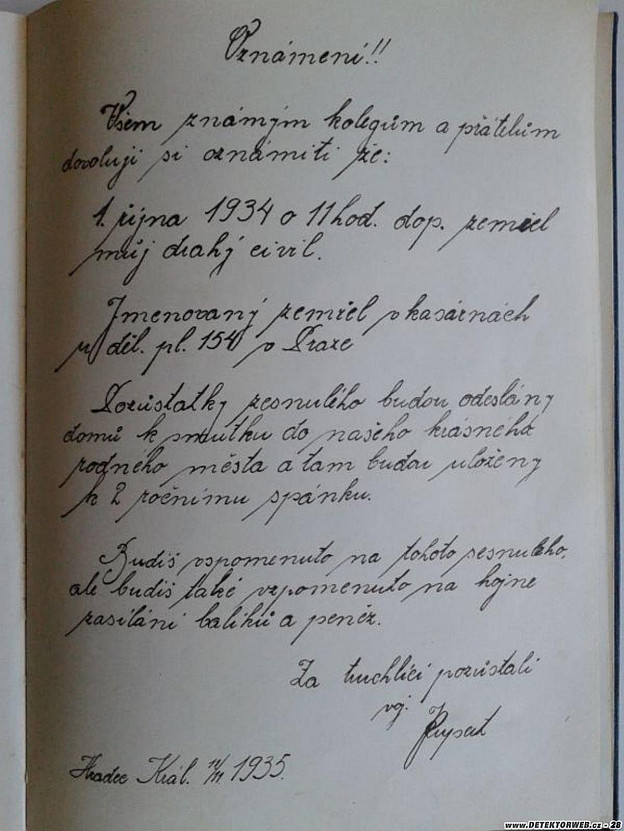 Oznámení!!
Všem známým kolegům a přátelům
dovoluji si oznámiti že:
1. října 1934 o 11 hod. dop. zemřel
můj drahý civil.
Jmenovaný zemřel v kasárnách
u děl. pl. 154 v Praze
Pozůstatky zesnulého budou odeslány
domů k smutku do našeho krásného
rodného města a tam budou uloženy
k 2 ročnímu spánku.
Budiš vspomenuto na tohoto sesnulého,
ale budiš také vzpomenuto na hojne
zasílání balíků a peněz.
Za truchlící pozůstalí
voj.
Hradec Král. 1935.
www.DETEKTORWEB.cz - 28